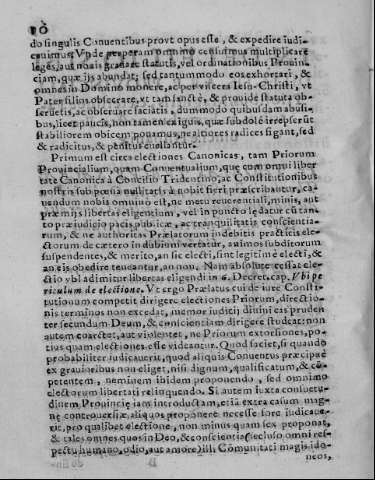 10
do singulis Conuentibus prout opus esse, & expedire iudi-
cauimus. Vnde nequaquam omnino censuimus multiplicare
leges, aut nouis grauare statutis, vel ordinationibus Prouin-
ciam, quæ ijs abundat; sed tantummodo eos exhortari, &
omnes in Domino monere, ac per viscera Iesu-Christi, vt
Pater filios obsecrare, vt tam sanctè, & prouidè statuta ob-
seruetis, ac obseruare faciatis, dummodo quibusdam abusi-
bus, licet paucis, non tamen exiguis, quæ subdolè irrepserũt
stabiliorem obicem ponamus, ne altiores radices figant, sed
& radicitus, & penitus euellantur.
Primum est circa electiones Canonicas, tam Priorum
Prouincialium, quam Conuentualium, quæ cum omni liber
tate Canonica à Concilio Tridentino, ac Constitutionibus
nostris sub pœna nullitatis à nobis fieri præscribantur, ca-
uendum nobis omnino est, ne metu reuerenti, minis, aut
præmijs libertas eligentium, vel in puncto lædatur cũ tan-
to præiudicio pacis publicæ, ac tranquilitatis conscientia-
rum, & ne authoritas Prælatorum indebitis practicis ele-
ctorum de cætero in dubium vertatur, animos subditorum
suspendentes, & merito, an sic electi, sint legitimè electi, &
an eis obedire teneantur, an non. Nam absolute cessat ele-
ctio vbi adimitur libertas eligendi in 6. Decret. cap. Vbi pe
riculum de electione. Vt ergo Prælatus cui de iure Consti-
tutionum competit dirigere electiones Priorum, directio-
nis terminos non excedat, memor iudicij diuini eas pruden
ter secundum Deum, & conscientiam dirigere studeat: non
autem coarctet, aut violentet, ne Priorum extorsiones, po-
tius quam electiones esse videantur. Quod faciet, si quando
probabiliter iudicauerit, quod aliquis Conuentus præcipuè
ex grauioribus non eliget, nisi dignum, qualificatum, & cõ-
petentem, neminem ibidem proponendo, sed omnimo
electorum libertati relinquendo. Si autem iuxta consuetu-
dinem Prouinciæ iam introductam, etiã extra casum mag-
næ controuersiæ, aliquos proponere necesse fore iudicaue-
rit, pro qualibet electione, non minus quam sex proponat,
& tales omnes quos in Deo, & conscientia (secluso omni res-
pectu humano, odio, aut amore) illi Cõmunitati magis ido-
neos,